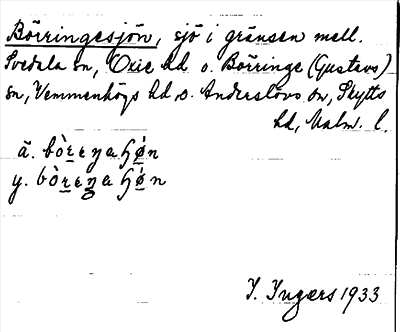 Börringesjön, sjö i gränsen mell.
Svedala sn, Oxie hd o. Börringe (Gustavs)
sn, Vemmenhögs hd o. Anderslövs sn, Skytts
hd, Malm. l.
ä.
y.
I. Ingers 1933